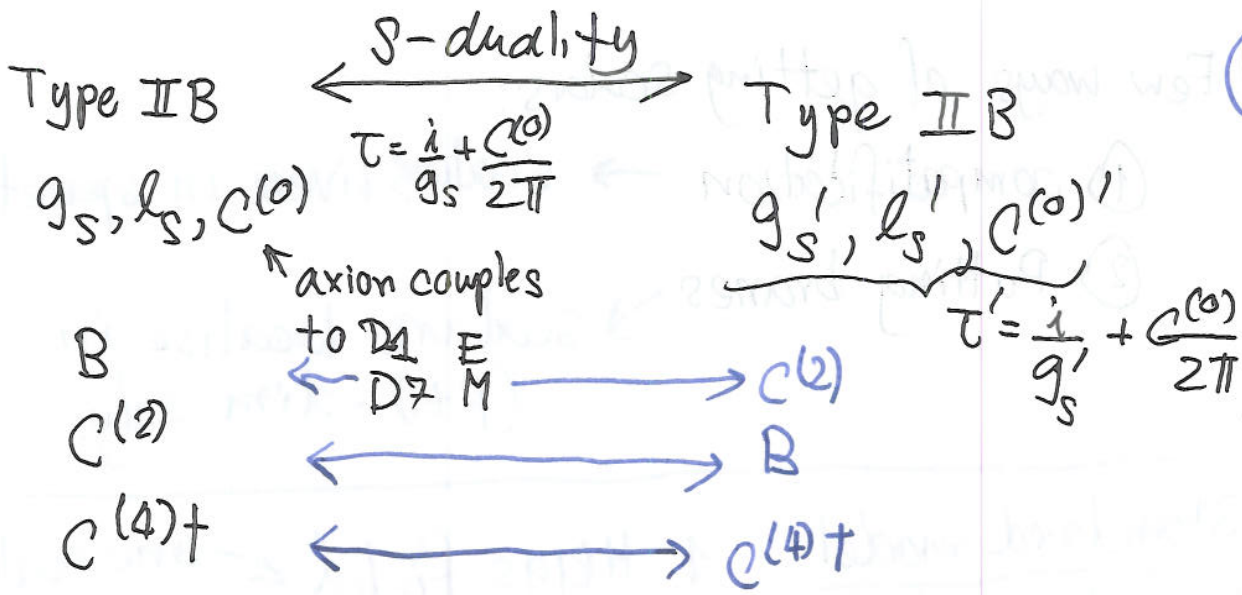 S-duality
Type IIB ⟷ Type IIB
τ = i/g_s + C^(0)/2π
g_s, l_s, C^(0)
g_s', l_s', C^(0)'
↖ axion couples
to D1 E
D7 M
τ' = i/g_s' + C^(0)/2π
B ⟷ C^(2)
C^(2) ⟷ B
C^(4)+ ⟷ C^(4)+